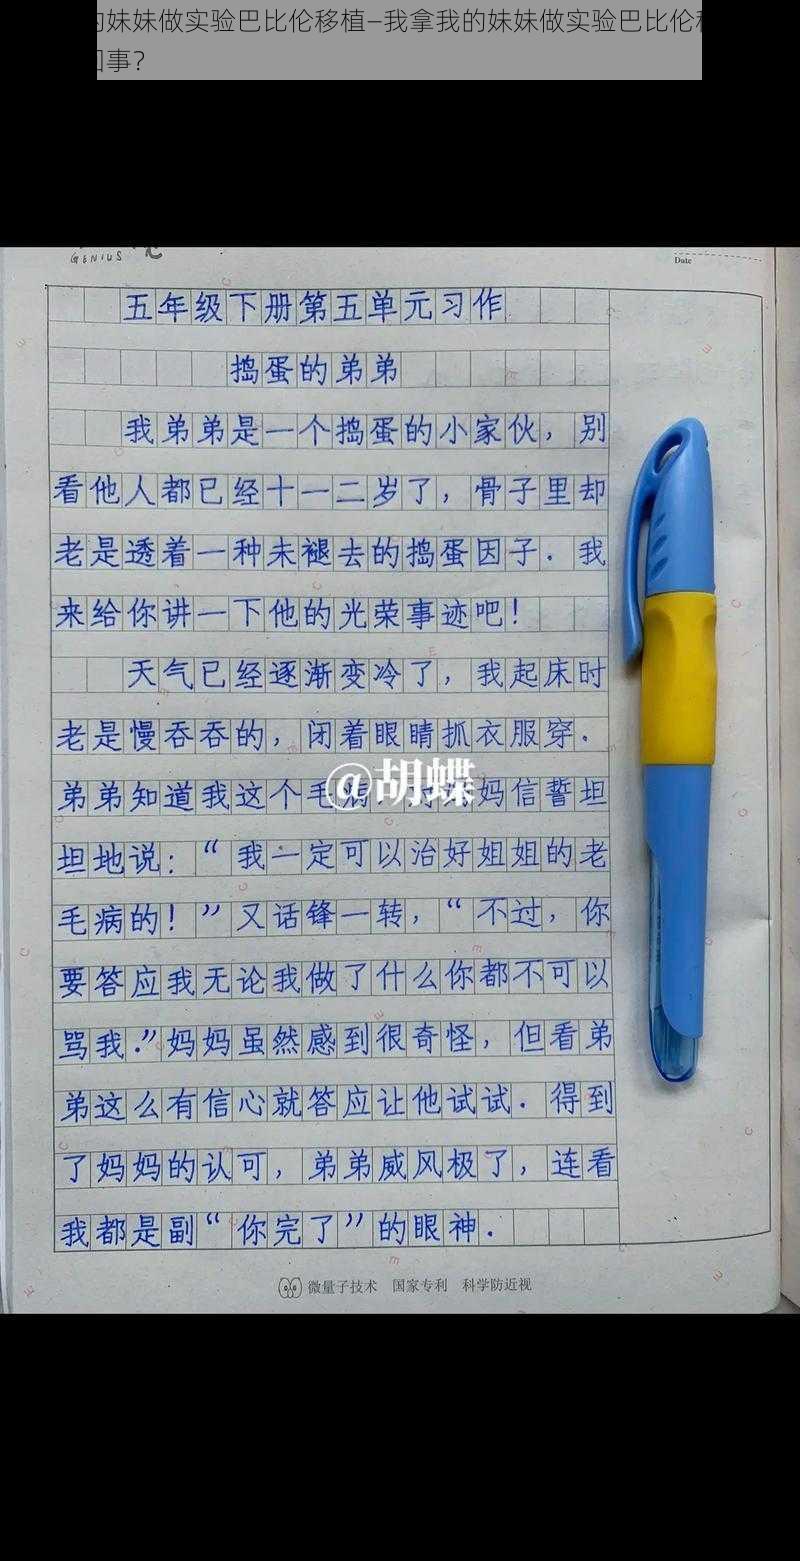 的妹妹做实验巴比伦移植—我拿我的妹妹做实验巴比伦移
事？
GENIUS
Date
五年级下册第五单元习作
捣蛋的弟弟
我弟弟是一个捣蛋的小家伙，别
看他人都已经十一二岁了，骨子里却
老是透着一种未褪去的捣蛋因子．我
来给你讲一下他的光荣事迹吧！
天气已经逐渐变冷了，我起床时
老是慢吞吞的，闭着眼睛抓衣服穿．
弟弟知道我这个毛病 妈信誓坦
@胡蝶
坦地说：“我一定可以治好姐姐的老
毛病的！”又话锋一转，“不过，你
要答应我无论我做了什么你都不可以
骂我．”妈妈虽然感到很奇怪，但看弟
弟这么有信心就答应让他试试．得到
了妈妈的认可，弟弟威风极了，连看
我都是副“你完了”的眼神．
微量子技术 国家专利 科学防近视